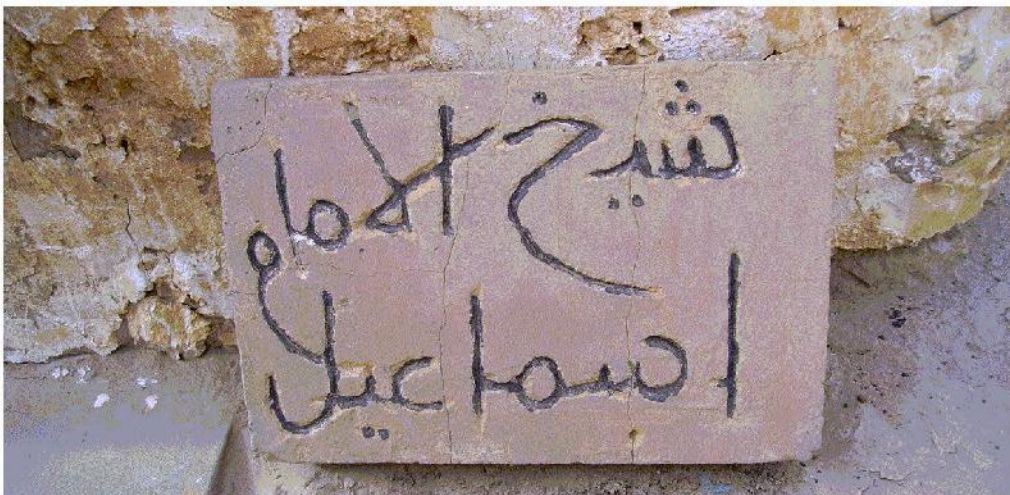 شيخ الامام
اسماعيل